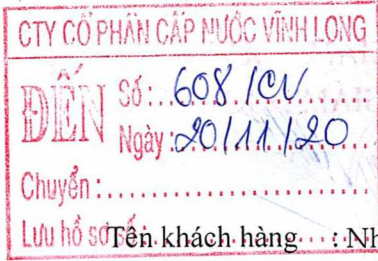 CTY CỔ PHẦN CẤP NƯỚC VĨNH LONG
ĐẾN
Số: 608/CV
Ngày: 20/11/20
Chuyển:
Lưu hồ sơ số:
Tên khách hàng : Nh